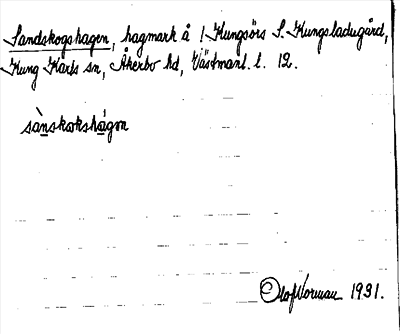 Sandskogshagen, hagmark å 1 Kungsörs S. Kungsladugård,
Kung Karls sn, Åkerbo hd, Västmanl. l. 12.
sànskωkshágωn
Olof Norman 1931.